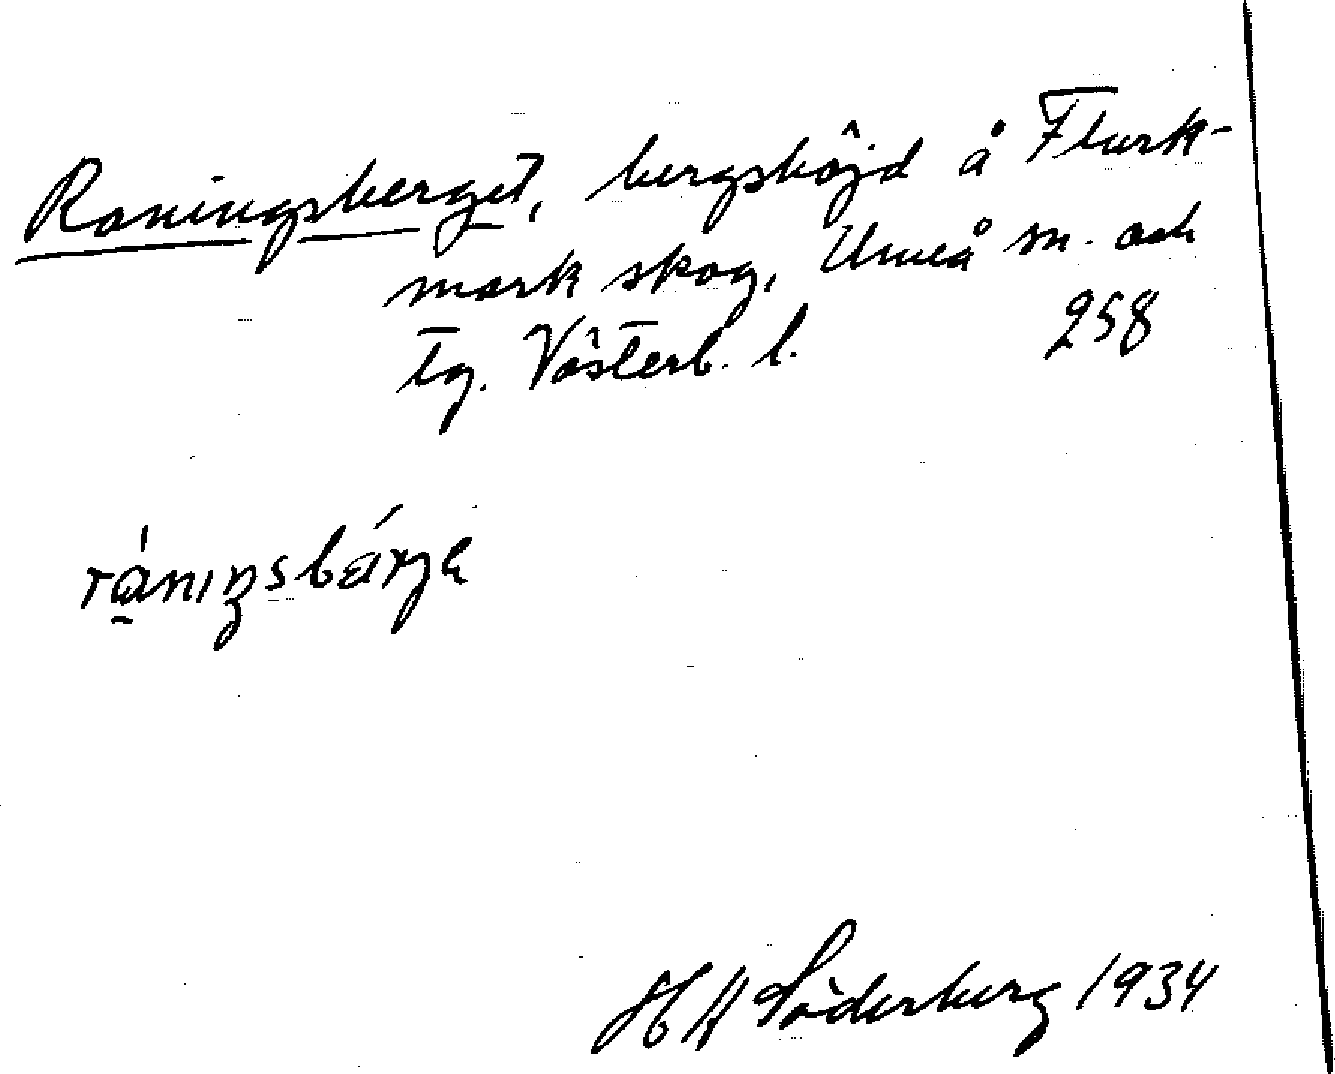 Raningsberget, bergshöjd å Flurk-
mark skog, Umeå sn. och
tg. Västerb. l. 258
råningsbárge
H H Söderberg 1934